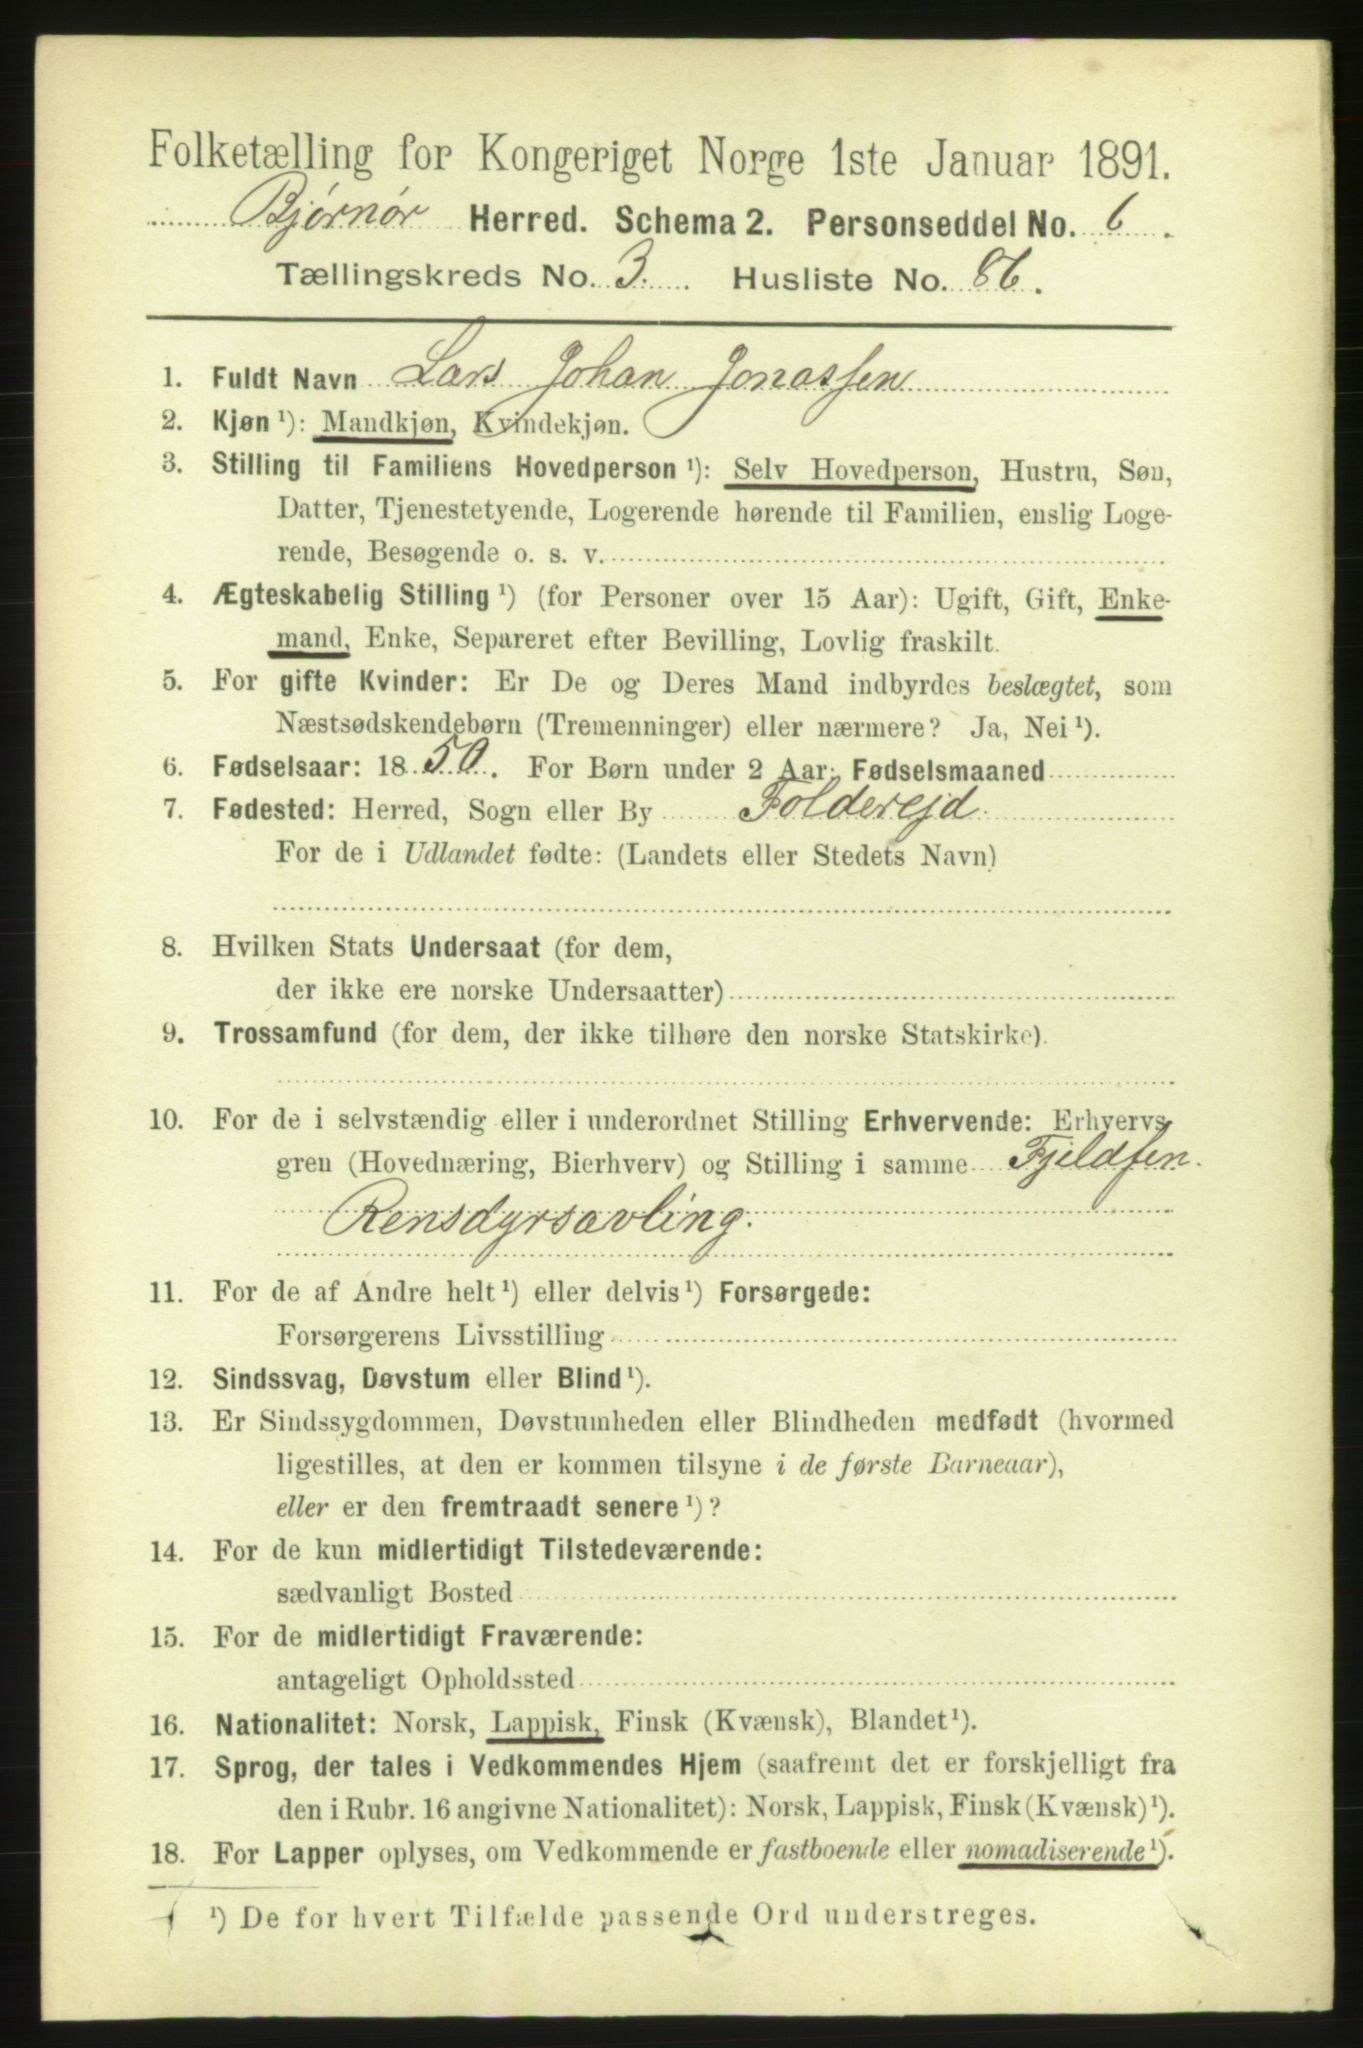 Folketælling for Kongeriget Norge 1ste Januar 1891.
Bjørnør Herred. Schema 2. Personseddel No. 6.
Tællingskreds No. 3. Husliste No. 86.
1. Fuldt Navn Lars Johan Jonassen
2. Kjøn ¹): Mandkjøn, Kvindekjøn.
3. Stilling til Familiens Hovedperson ¹): Selv Hovedperson, Hustru, Søn,
Datter, Tjenestetyende, Logerende hørende til Familien, enslig Loge-
rende, Besøgende o. s. v.
4. Ægteskabelig Stilling ¹) (for Personer over 15 Aar): Ugift, Gift, Enke-
mand, Enke, Separeret efter Bevilling, Lovlig fraskilt.
5. For gifte Kvinder: Er De og Deres Mand indbyrdes beslægtet, som
Næstsødskendebørn (Tremenninger) eller nærmere? Ja, Nei ¹).
6. Fødselsaar: 1850. For Børn under 2 Aar: Fødselsmaaned
7. Fødested: Herred, Sogn eller By Folderejd.
For de i Udlandet fødte: (Landets eller Stedets Navn)
8. Hvilken Stats Undersaat (for dem,
der ikke ere norske Undersaatter)
9. Trossamfund (for dem, der ikke tilhøre den norske Statskirke).
10. For de i selvstændig eller i underordnet Stilling Erhvervende: Erhvervs-
gren (Hovednæring, Bierhverv) og Stilling i samme Fjeldfin.
Rensdyrsavling.
11. For de af Andre helt ¹) eller delvis ¹) Forsørgede:
Forsørgerens Livsstilling
12. Sindssvag, Døvstum eller Blind ¹).
13. Er Sindssygdommen, Døvstumheden eller Blindheden medfødt (hvormed
ligestilles, at den er kommen tilsyne i de første Barneaar),
eller er den fremtraadt senere ¹)?
14. For de kun midlertidigt Tilstedeværende:
sædvanligt Bosted
15. For de midlertidigt Fraværende:
antageligt Opholdssted
16. Nationalitet: Norsk, Lappisk, Finsk (Kvænsk), Blandet ¹).
17. Sprog, der tales i Vedkommendes Hjem (saafremt det er forskjelligt fra
den i Rubr. 16 angivne Nationalitet): Norsk, Lappisk, Finsk (Kvænsk) ¹).
18. For Lapper oplyses, om Vedkommende er fastboende eller nomadiserende ¹).
¹) De for hvert Tilfælde passende Ord understreges.